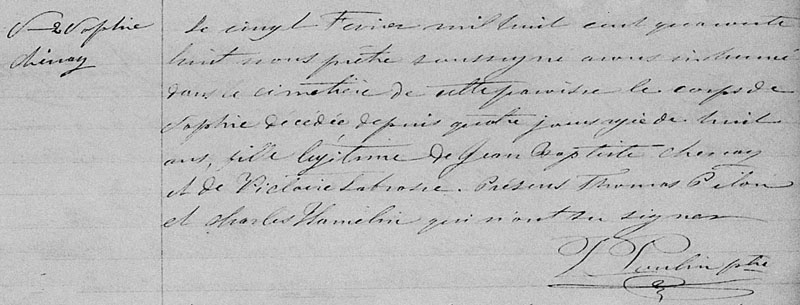 S-2 Sophie
Chénay
Le cinq Fevrier mil huit cent quarante
huit nous prêtre soussigné avons inhumé
dans le cimetière de cette paroisse le corps de
Sophie décédée depuis quatre jours agée de huit
ans, fille légitime de Jean Baptiste Chenay
et de Victoire Labrosse. Présens Thomas Pilon
et Charles Hamelin qui n'ont su signer
Poulin ptre